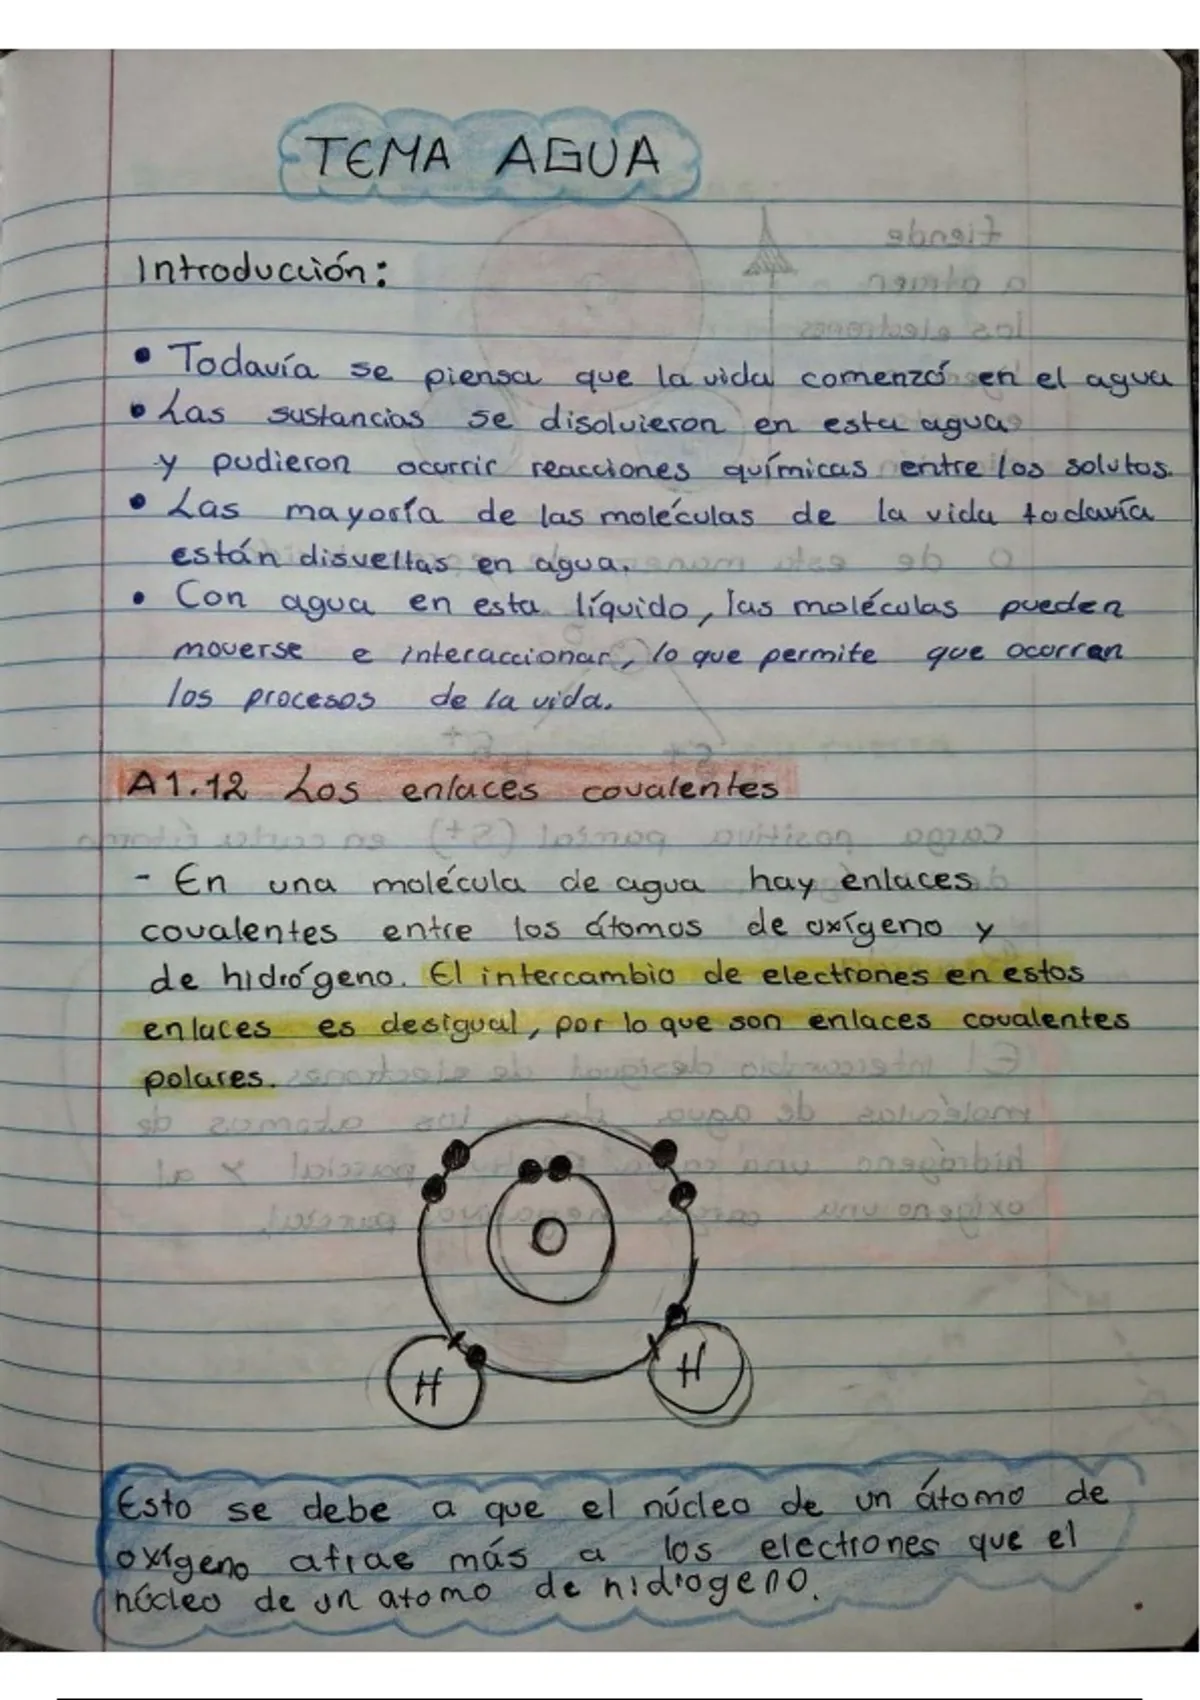 TEMA AGUA
Introducción:
• Todavía se piensa que la vida comenzó en el agua
• Las sustancias se disolvieron en esta agua
y pudieron ocurrir reacciones químicas entre los solutos.
• Las mayoría de las moléculas de la vida todavía
están disueltas en agua.
• Con agua en esta líquido, las moléculas pueden
moverse e interaccionar, lo que permite que ocurran
los procesos de la vida.
A1.12 Los enlaces covalentes
- En una molécula de agua hay enlaces
covalentes entre los átomos de oxígeno y
de hidrógeno. El intercambio de electrones en estos
enlaces es desigual, por lo que son enlaces covalentes
polares.
O
H H
Esto se debe a que el núcleo de un átomo de
oxígeno atrae más a los electrones que el
núcleo de un atomo de hidrogeno.